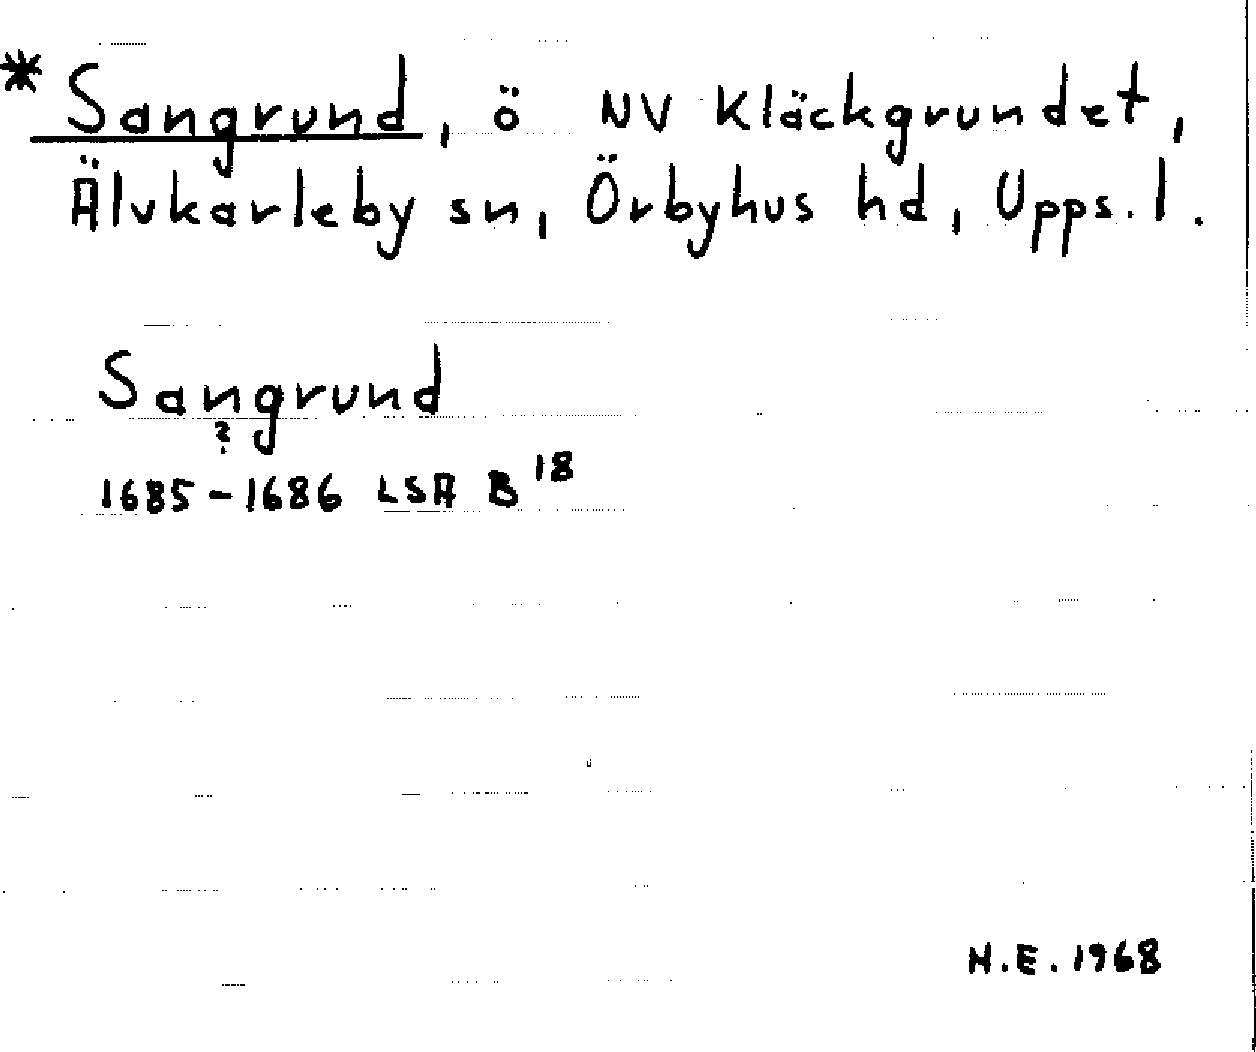 * Sangrund, ö NV Kläckgrundet,
Älvkarleby sn, Örbyhus hd, Upps. l.
Sangrund
?
1685-1686 LSA B18
H.E. 1968